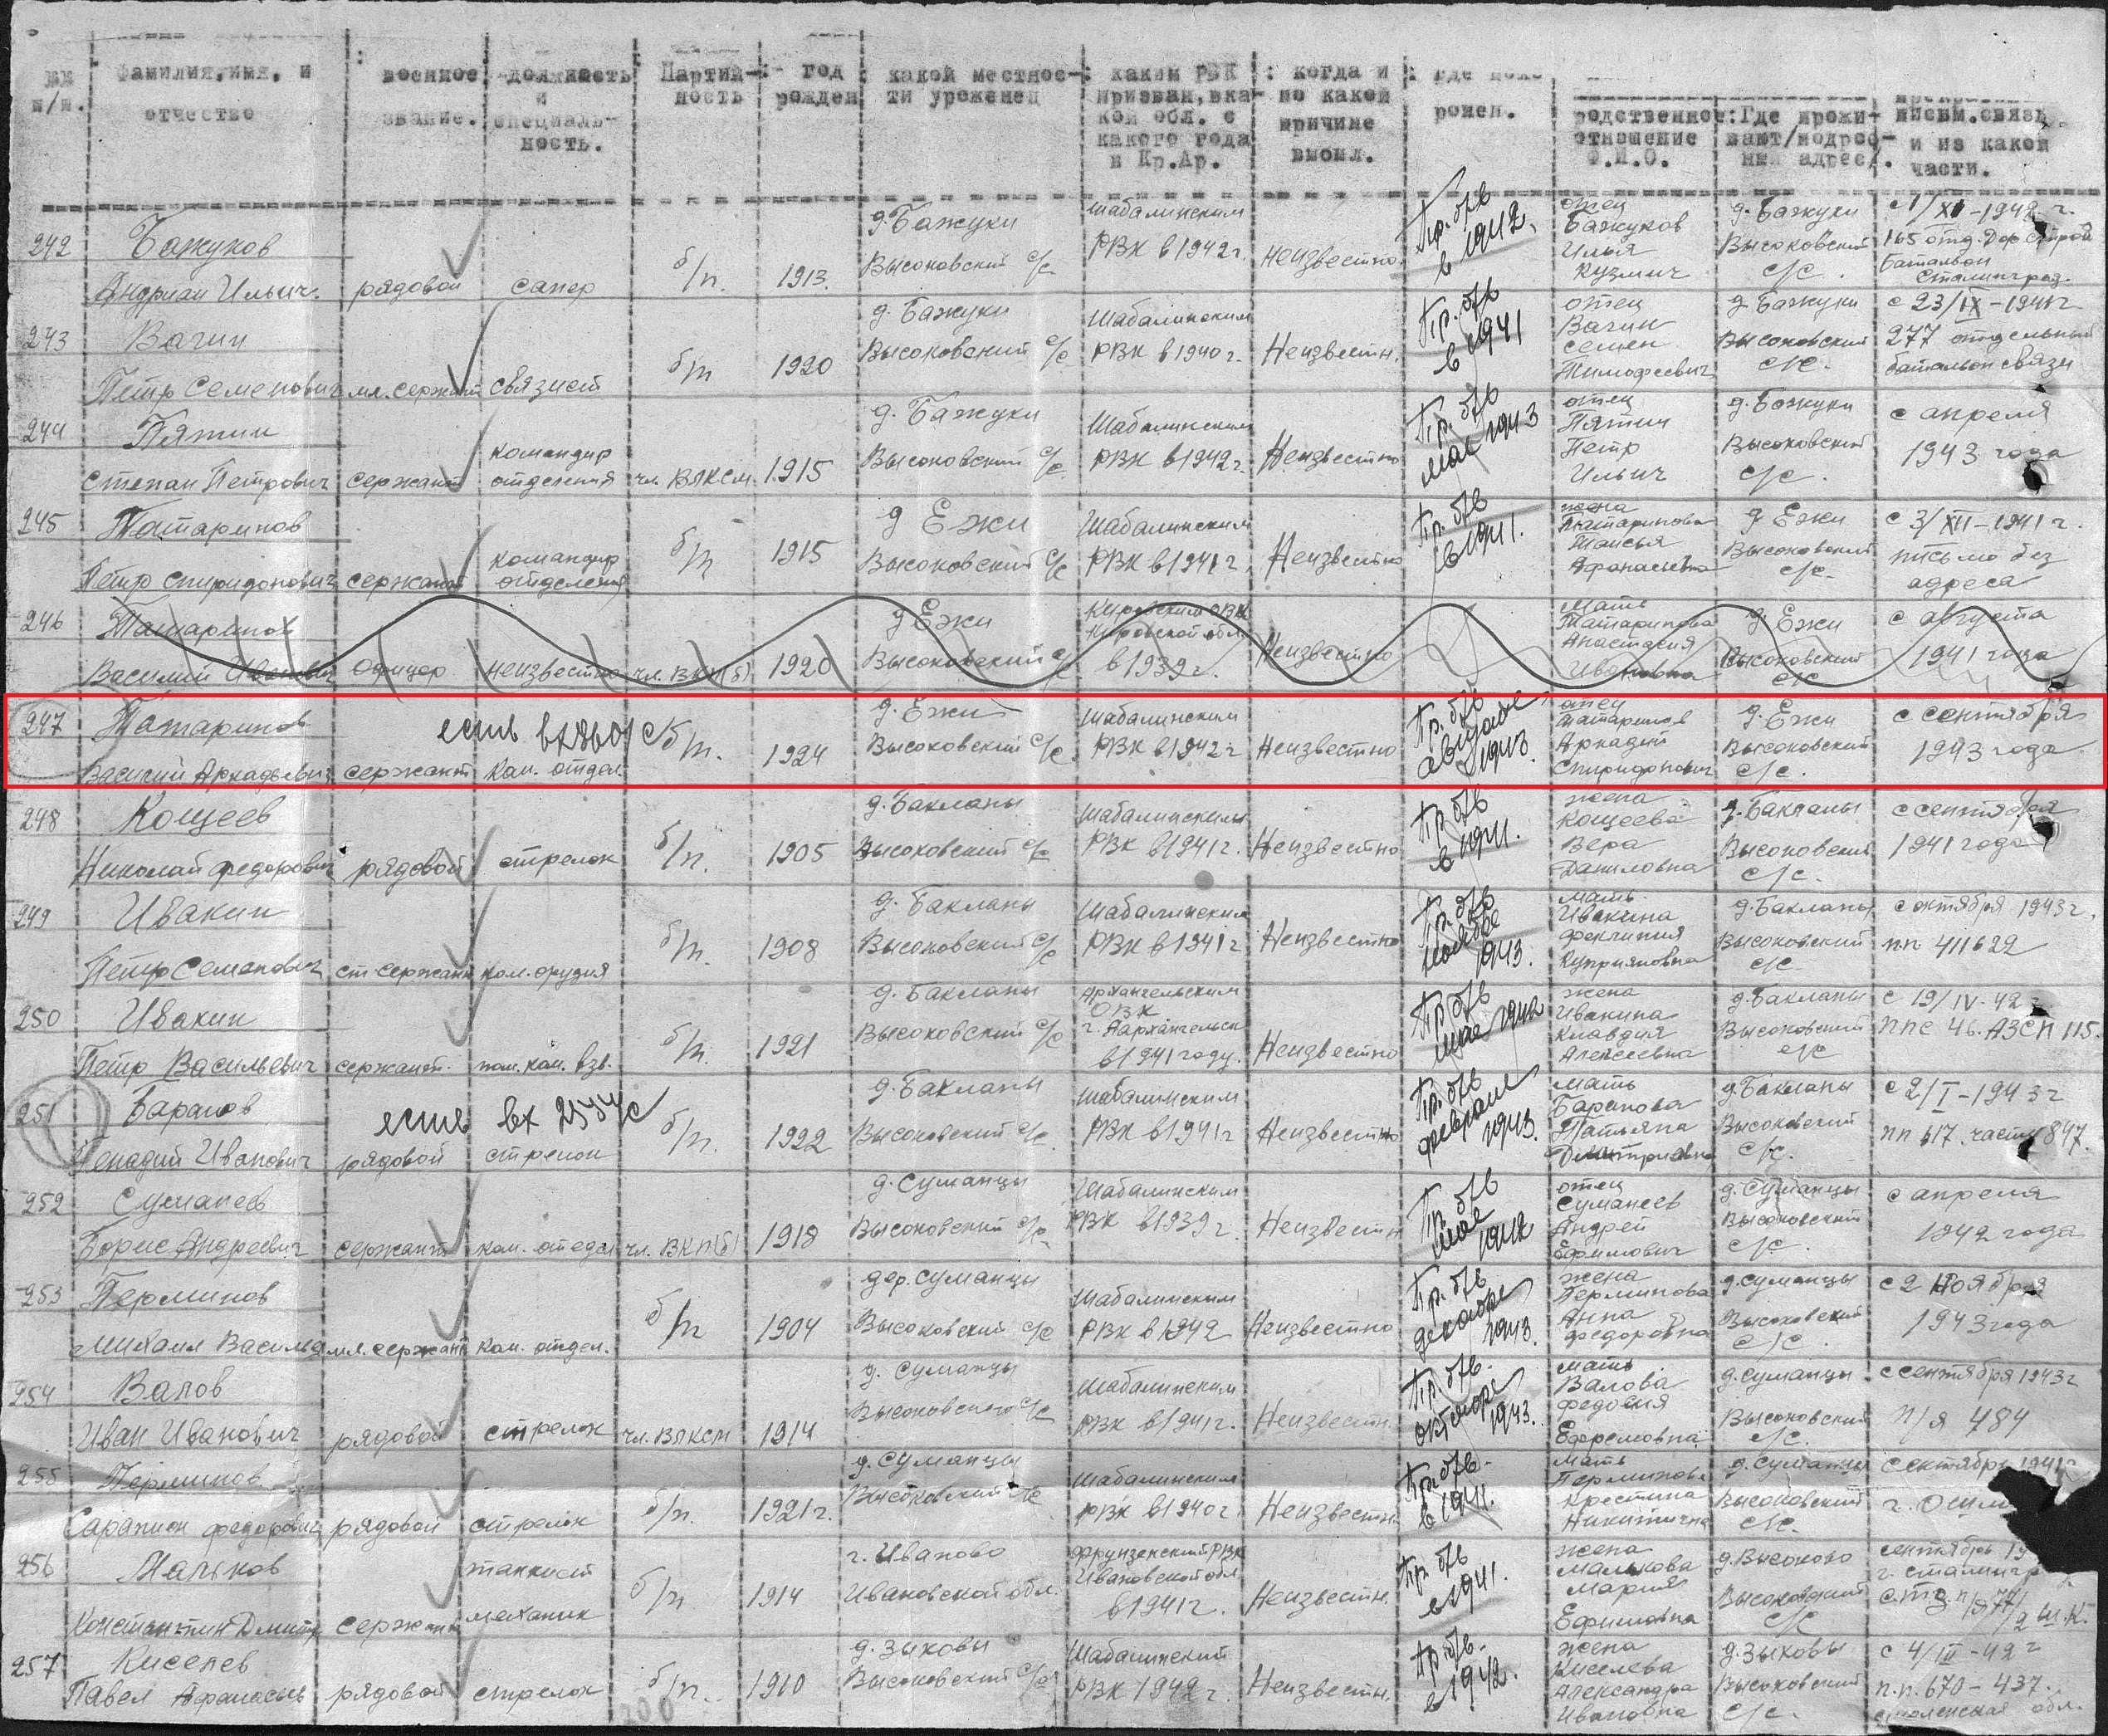 №№ п/п.
фамилия, имя, и отчество
военное звание.
должность и специальность.
Партийность
год рожден
какой местности уроженец
каким РВК призван, в какой обл. с какого года в Кр.Ар.
когда и по какой причине выбыл.
ронен.
родственное отношение Ф.И.О.
Где проживают/подробный адрес/.
письм.связь и из какой части.
242 Бажуков Андриан Ильич. рядовой сапер б/п. 1913. д. Бажуки Высоковский с/с Шабалинским РВК в 1942 г. неизвестно. Пр. б/в в 1942. отец Бажуков Илья Кузмич д. Бажуки Высоковский с/с. с 1/XI-1942 г. 165 отд. Дор Строй Батальон Сталинград.
243 Вагин Петр Семенович мл. сержант связист б/п 1920 д. Бажуки Высоковский с/с Шабалинским РВК в 1940 г. Неизвестн. Пр. б/в в 1941 отец Вагин Семен Тимофеевич д. Бажуки Высоковский с/с. с 23/IX-1941г 277 отдельный батальон связи
244 Пятин Степан Петрович сержант командир отделения чл. ВЛКСМ 1915 д. Бажуки Высоковский с/с Шабалинским РВК в 1942 г. Неизвестно Пр. б/в мае 1943 отец Пятин Петр Ильич д. Бажуки Высоковский с/с. с апреля 1943 года
245 Татаринов Петр Спиридонович сержант командир отделения б/п 1915 д Ежи Высоковский с/с Шабалинским РВК в 1941 г. Неизвестно Пр. б/в в 1941. жена Татаринова Таисья Афанасьевна д Ежи Высоковский с/с. с 3/XII-1941 г. письмо без адреса
246 Татаринов Василий Иванович офицер неизвестно чл. ВКП(б) 1920 д Ежи Высоковский с/с Кировским ОВК Кировской обл в 1939 г. Неизвестно мать Татаринова Анастасия Ивановна д. Ежи Высоковский с/с с августа 1941 года
247 Татаринов Василий Аркадьевич сержант ком. отдел. есть вх 8601 с б/п. 1924 д. Ежи Высоковский с/с. Шабалинским РВК в 1942 г Неизвестно Пр. б/в августе 1943. отец Татаринов Аркадий Спиридонович д. Ежи Высоковский с/с. с сентября 1943 года
248 Кощеев Николай Федорович рядовой стрелок б/п. 1905 д. Бакланы Высоковский с/с Шабалинским РВК в 1941 г. Неизвестно Пр б/в в 1941. жена Кощеева Вера Даниловна д. Бакланы Высоковский с/с. с сентября 1941 года
249 Ивакин Петр Семенович ст сержант ком. орудия б/п. 1908 д. Бакланы Высоковский с/с Шабалинским РВК в 1941 г Неизвестно Пр. б/в ноябре 1943. мать Ивакина Феклиния Куприяновна д. Бакланы Высоковский с/с. с октября 1943 г. пп 411622
250 Ивакин Петр Васильевич сержант. пом. ком. взв. б/п. 1921 д. Бакланы Высоковский с/с Архангельским ОВК г. Архангельск в 1941 году. Неизвестно Пр б/в мае 1942 жена Ивакина Клавдия Алексеевна д. Бакланы Высоковский с/с с 19/IV-42 г. ппс 46. АЗСП 115.
251 Баранов Генадий Иванович рядовой стрелок есть вх 2534/с б/п. 1922 д. Бакланы Высоковский с/с. Шабалинским РВК в 1941 г Неизвестно Пр. б/в феврале 1943. мать Баранова Татьяна Дмитриевна д. Бакланы Высоковский с/с. с 2/I-1943 г пп 617. часть 847.
252 Суманеев Борис Андреевич сержант ком. отдел чл. ВКП(б) 1918 д. Суманцы Высоковский с/с Шабалинским РВК в 1939 г. Неизвестн Пр. б/в мае 1942 отец Суманеев Андрей Ефимович д. Суманцы Высоковский с/с. с апреля 1942 года
253 Перминов Михаил Василь мл. сержант ком. отдел. б/п 1904 дер. Суманцы Высоковский с/с Шабалинским РВК в 1942 Неизвестно Пр. б/в декабре 1943. жена Перминова Анна Федоровна д. Суманцы Высоковский с/с. с 2 ноября 1943 года
254 Валов Иван Иванович рядовой стрелок чл. ВЛКСМ 1914 д. Суманцы Высоковского с/с Шабалинским РВК в 1941 г. Неизвестн. Пр. б/в. октябре 1943. мать Валова Федосия Ефремовна д. Суманцы Высоковский с/с. с сентября 1943 г п/я 484
255 Перминов Сарапион Федорович рядовой стрелок б/п. 1921 г. д. Суманцы Высоковский с/с Шабалинским РВК в 1940 г. Неизвестн. Пр. б/в. в 1941. мать Перминова Крестина Никитична д. Суманцы Высоковский с/с. сентябрь 1941 г
256 Мальков Константин Дмитр сержант танкист механик б/п 1914 г. Иваново Ивановской обл. Фрунзенский РВК Ивановской обл в 1941 г. Неизвестн. Пр. б/в в 1941. жена Малькова Мария Ефимовна д. Высоково Высоковский с/с сентябрь
257 Киселев Павел Афанасьев рядовой стрелок б/п. 1910 д. Зыковы Высоковский с/с Шабалинский РВК 1942 г. Неизвестн. Пр. б/в. в 1942. жена Киселева Александра Ивановна д. Зыковы Высоковский с/с. с 4/III-42 г п.п. 670-437. Смоленская обл.
200